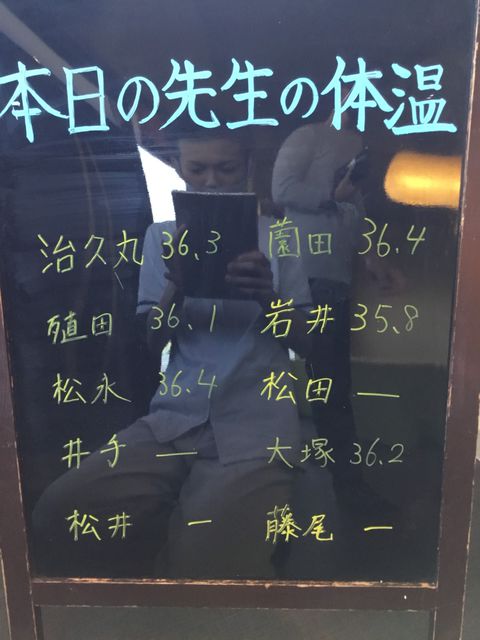 本日の先生の体温
治久丸 36.3 薗田 36.4
殖田 36.1 岩井 35.8
松永 36.4 松田 —
井手 — 大塚 36.2
松井 — 藤尾 —